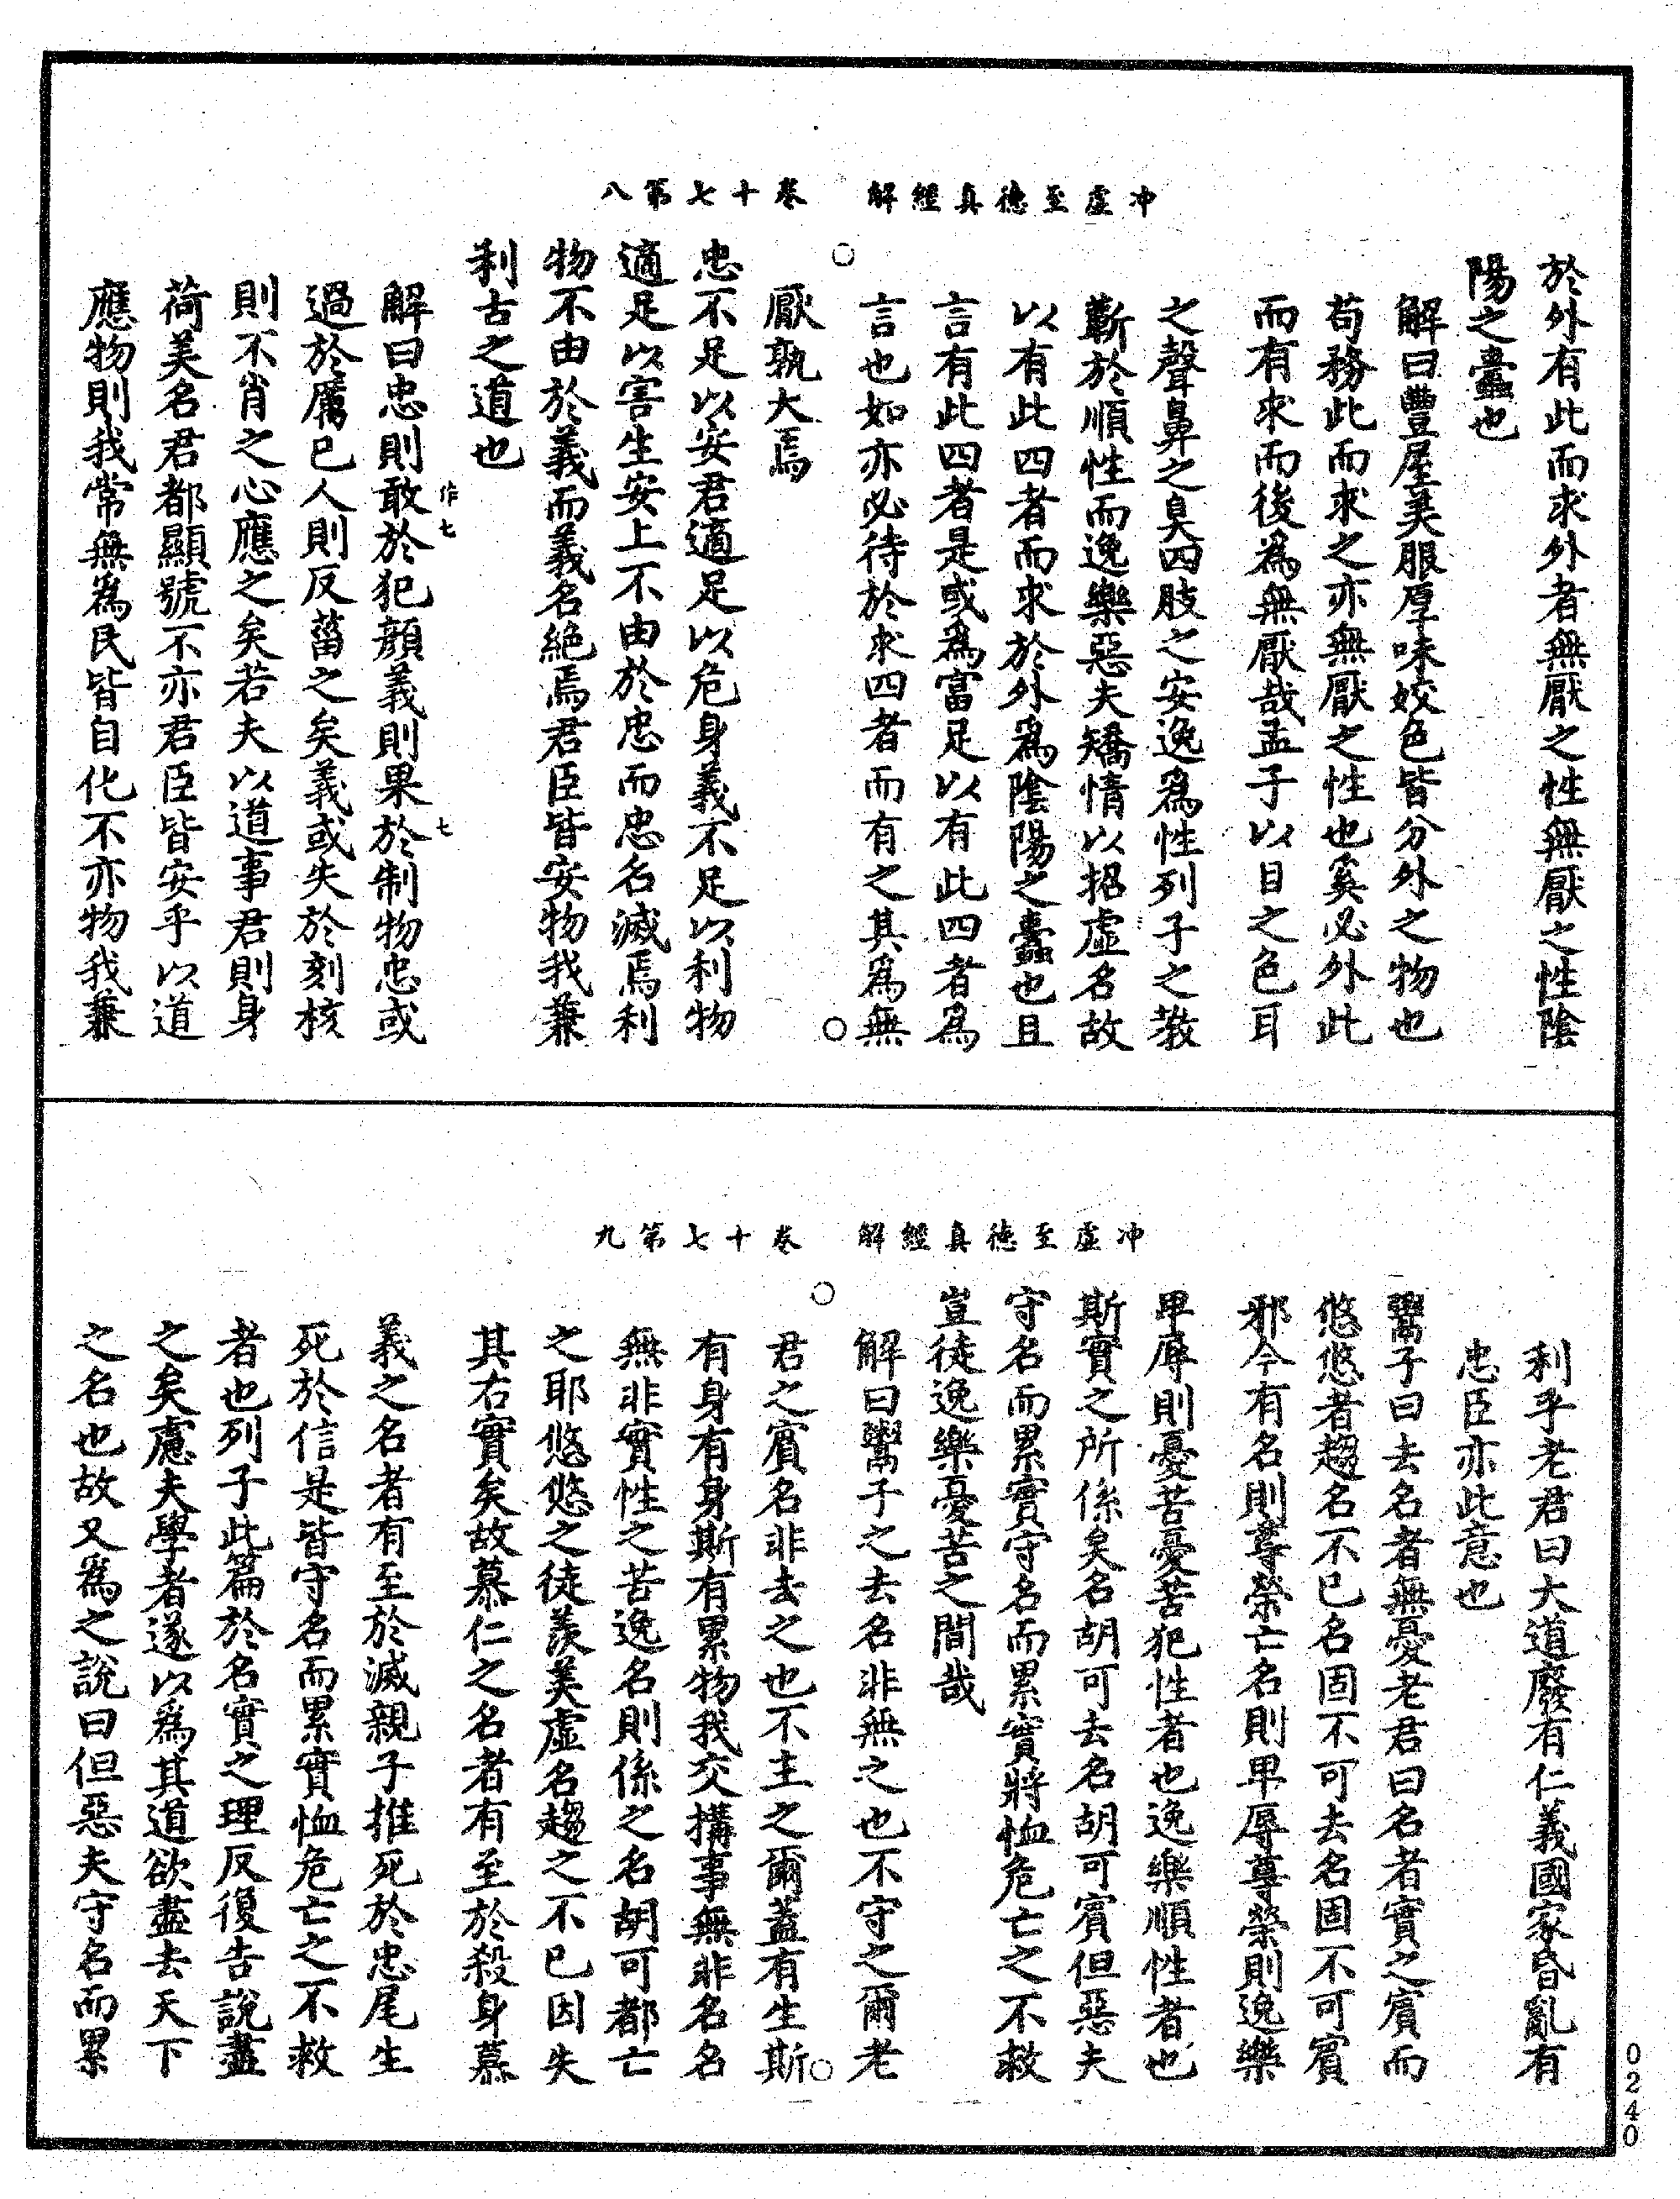 冲虛至德真經解　卷十七第八
於外有此而求外者無厭之性無厭之性陰
陽之蠹也
解曰豐屋美服厚味姣色皆分外之物也
苟務此而求之亦無厭之性也奚必外此
而有求而後為無厭哉孟子以目之色耳
之聲鼻之臭四肢之安逸為性列子之教
蘄於順性而逸樂惡夫矯情以招虛名故
以有此四者而求於外為陰陽之蠹也且
言有此四者是或為富足以有此四者為
言也如亦必待於求四者而有之其為無
厭孰大焉
忠不足以安君適足以危身義不足以利物
適足以害生安上不由於忠而忠名滅焉利
物不由於義而義名絕焉君臣皆安物我兼
利古之道也
解曰忠則敢於犯顏義則果於制物忠或
過於厲已人則反菑之矣義或失於刻核
則不肖之心應之矣若夫以道事君則身
荷美名君都顯號不亦君臣皆安乎以道
應物則我常無為民皆自化不亦物我兼
作七
七
冲虛至德真經解　卷十七第九
利乎老君曰大道廢有仁義國家昏亂有
忠臣亦此意也
鬻子曰去名者無憂老君曰名者實之賓而
悠悠者趨名不已名固不可去名固不可賓
邪今有名則尊榮亡名則卑辱尊榮則逸樂
卑辱則憂苦憂苦犯性者也逸樂順性者也
斯實之所係矣名胡可去名胡可賓但惡夫
守名而累實守名而累實將恤危亡之不救
豈徒逸樂憂苦之間哉
解曰鬻子之去名非無之也不守之爾老
君之賓名非去之也不主之爾蓋有生斯
有身有身斯有累物我交搆事無非名名
無非實性之苦逸名則係之名胡可都亡
之耶悠悠之徒羨美虛名趨之不已因失
其右實矣故慕仁之名者有至於殺身慕
義之名者有至於滅親子推死於忠尾生
死於信是皆守名而累實恤危亡之不救
者也列子此篇於名實之理反復告說盡
之矣慮夫學者遂以為其道欲盡去天下
之名也故又為之說曰但惡夫守名而累
0240